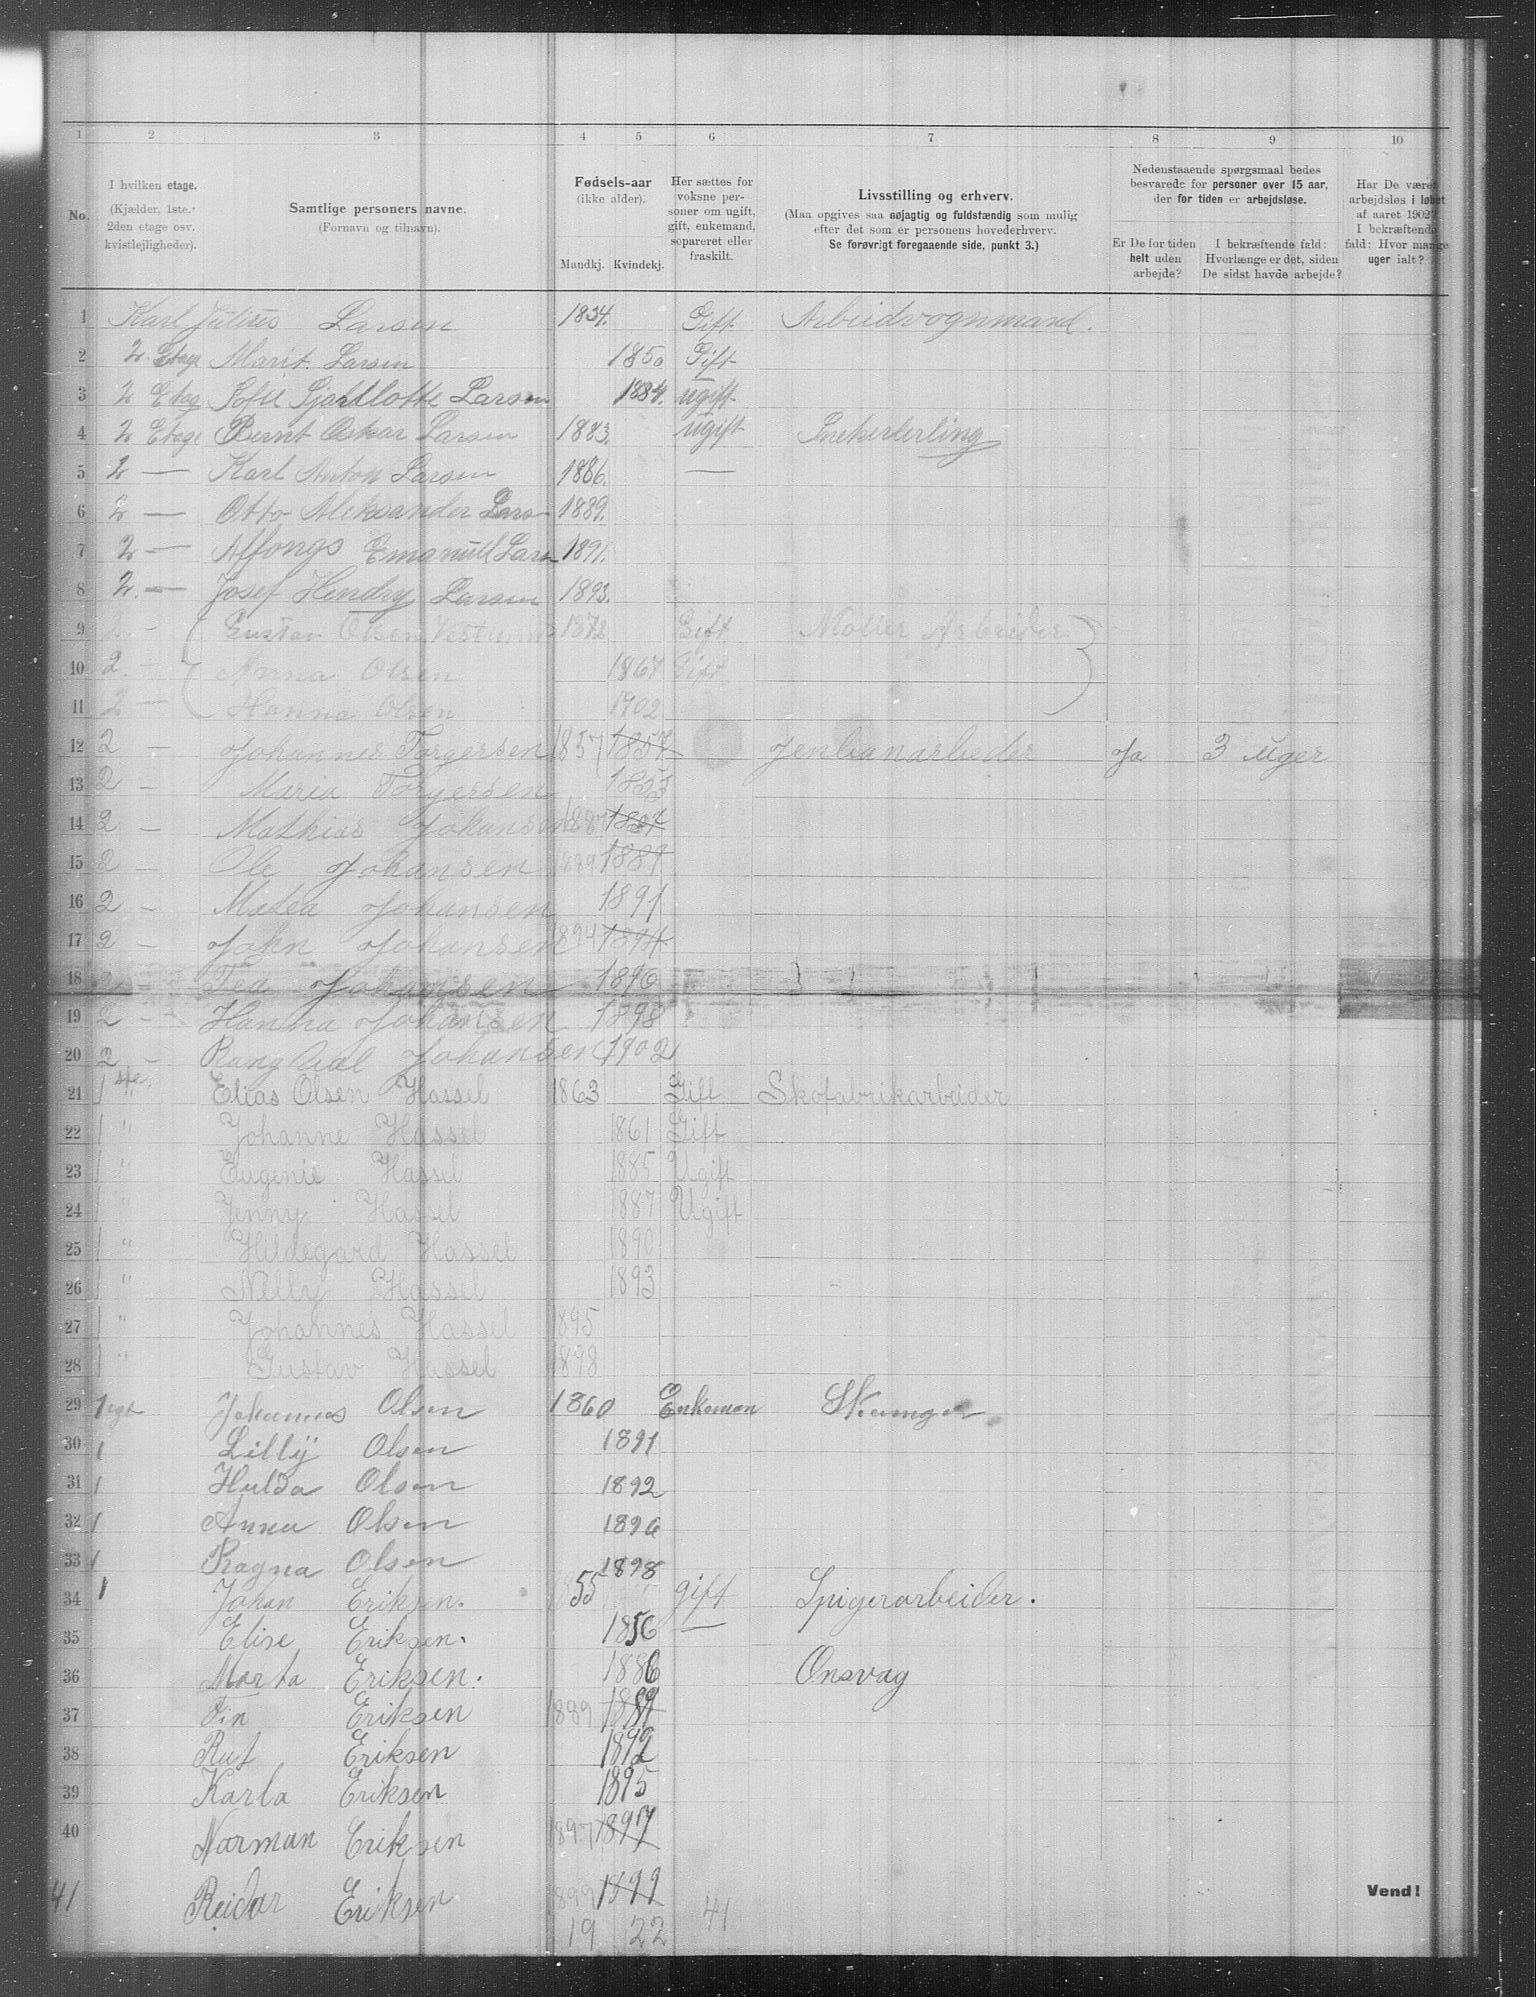 1 2 3 4 5 6 7 8 9 10
No.
I hvilken etage.
(Kjælder, 1ste,
2den etage osv.
kvistlejligheder).
Samtlige personers navne.
(Fornavn og tilnavn).
Fødsels-aar
(ikke alder).
Mandkj. Kvindekj.
Her sættes for
voksne per-
soner om ugift,
gift, enkemand,
sopareret eller
fraskilt.
Livsstilling og erhverv.
(Maa opgives saa nøjagtig og fuldstændig som mulig
efter det som er personens hovederhverv.
Se forøvrigt foregaaende side, punkt 3.)
Nedenstaaende spørgsmaal bedes
besvarede for personer over 15 aar,
der for tiden er arbejdsløse.
Er De for tiden
helt uden
arbejde?
I bekræftende fald:
Hvorlænge er det, siden
De sidst havde arbejde?
Har De været
arbejdsløs i løbet
af aaret 1902?
I bekræftende
fald: Hvor mange
uger ialt?
1 Karl Julius Larsen 1854. Gift Arbeidvognmand.
2 2. Etage Marit Larsen 1850 Gift
3 2 Etag Sofie Sjarllotte Larsen 1884. ugift
4 2 Etage Bernt Oskar Larsen 1883. ugift Snekerlerling
5 2 — Karl Anton Larsen 1886. —
6 2 — Otto Aleksander Larsn 1889.
7 2 — Alfongs Emanuell Larsn 1891.
8 2. — Josef Hendry Larsen 1893.
9 2 - Gustav Olsen 1872 Gift Møller Arbeider
10 2. - Anna Olsen 1867 Gift
11 2 - Hanna Olsen 1902
12 2 - Johannes Torgersen 1857 1857 Jenbanarbeder Ja 3 uger
13 2 - Maria Torgersen 1853
14 2 - Mathias Johansen 1887 1887
15 2 - Ole Johansen 1889 1889
16 2 - Matea Johansen 1891
17 2 - John Johansen 1894 1894
18 2 - Tea Johansen 1896
19 2 - Hanna Johansen 1898
20 2 - Ranghial Johansen 1902
21 1 ste. Elias Olsen Hassel 1863 Gift Skofabrikarbeider
22 1 " Johanne Hassel 1861 Gift
23 1 " Eugenie Hassel 1885 Ugift
24 1 " Jenny Hassel 1887 Ugift
25 1 " Hildegard Hassel 1890
26 1 " Nelly Hassel 1893
27 1 " Johannes Hassel 1895
28 1 " Gustav Hassel 1898
29 1 Johannes Olsen 1860 Enkeman
30 1 Lilly Olsen 1891
31 1 Hulda Olsen 1892
32 1 Anna Olsen 1896
33 1 Ragna Olsen 1898
34 1 Johan Eriksen. 1855 gift Spigerarbeider.
35 Elise Eriksen. 1856 —
36 Marta Eriksen. 1886 Onsvag
37 Fin Eriksen 1889 1889
38 Rut Eriksen 1892
39 Karla Eriksen 1895
40 Norman Eriksen 1897 1897
41 Reidar Eriksen 1899 1899
19 22 41
Vend!